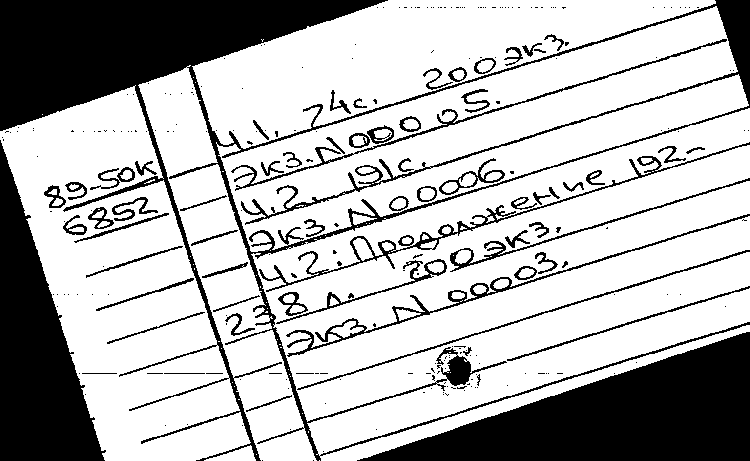 Ч.1. 74с. 200экз.
экз. N00005.
89-50к
6852
Ч.2. 191с.
экз. N00006.
Ч.2: Продолжение. 192-
238 л. 200экз.
экз. N 00003.